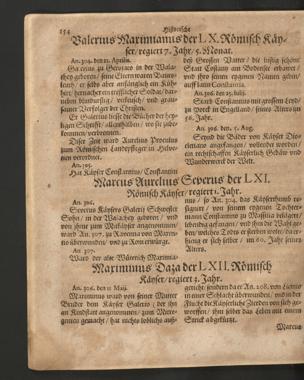 154 Historische
Valerius Maximianus der LX. Römisch Käy-
ser/ regiert 7. Jahr/ 5. Monat.
An. 304. den 21. Aprilis.
Galerius zu
hochgeboren/ seine Eltern waren
leuth/ er selbs aber anfänglich ein Küh-
hirt/ hernacher ein trefflicher Soldat/ dar-
neben blutdürstig/ und grau-
samer Verfolger der Christen.
Er Galerius hiesse die Bücher der hey-
ligen Schrifft/ allenthalben/ wo sie zube-
kommen/ verbrennen.
Diser Zeit ward Aurelius Proculus
zum Römischen Landtpfleger in Helve-
tien verordnet.
An. 305.
Hat Käyser Constantius/ Constantini
deß Grossen Vatter/ die lustig schöne
Statt Costantz am Bodensee erbawet/
und ihro seinen eygnen Namen geben/
auff Latein Constantia.
An. 306. den 25. Julij.
Starb Constantius mit grossem Leyd
zu Yorck in Engelland/ seines Alters im
56. Jahr.
An. 306. den 1. Aug.
Seynd die Bäder von Käyser Dio-
cletiano angefangen/ vollendet worden/
ein trefflichstes Käyserlich Gebäw und
Wunderwerck der Welt.
Marcus Aurelius Severus der LXI.
Römisch Käyser/ regiert 1. Jahr.
An. 306.
Severus Käysers Galerij Schwöster
Sohn/ in der Walachey geboren/ und
von ihme zum Mitkäyser angenommen/
ward An. 307. zu Ravenna von Maxen-
tio überwunden/ und zu Rom erwürgt.
An. 307.
Ward der alte Wüterich Maximia-
nus/ so An. 304. das Käyserthumb re-
signiert/ von seinem eygnen Tochter-
mann Constantino zu Massilia belägert/
lebendig gefangen/ und ihm die Wahl ge-
geben/ welches Todes er sterben wolle/ dar-
auff er sich selber/ im 60. Jahr seines
Alters.
Maximinus Daza der LXII. Römisch
Käyser/ regiert 3. Jahr.
An. 306. den 11 Maij.
Maximinus ward von seiner Mutter
Bruder dem Käyser Galerio/ der ihn
an Kindsstatt angenommen/ zum Mitre-
genten gemacht/ hat nichts löblichs auß-
gericht/ sondern da er An. 208. von Licinio
in einer Schlacht überwunden/ und in der
Flucht die Käyserliche Zierden von sich ge-
worffen/ ihm selber das Leben mit einem
Strick abgekürtzt.
Marcus